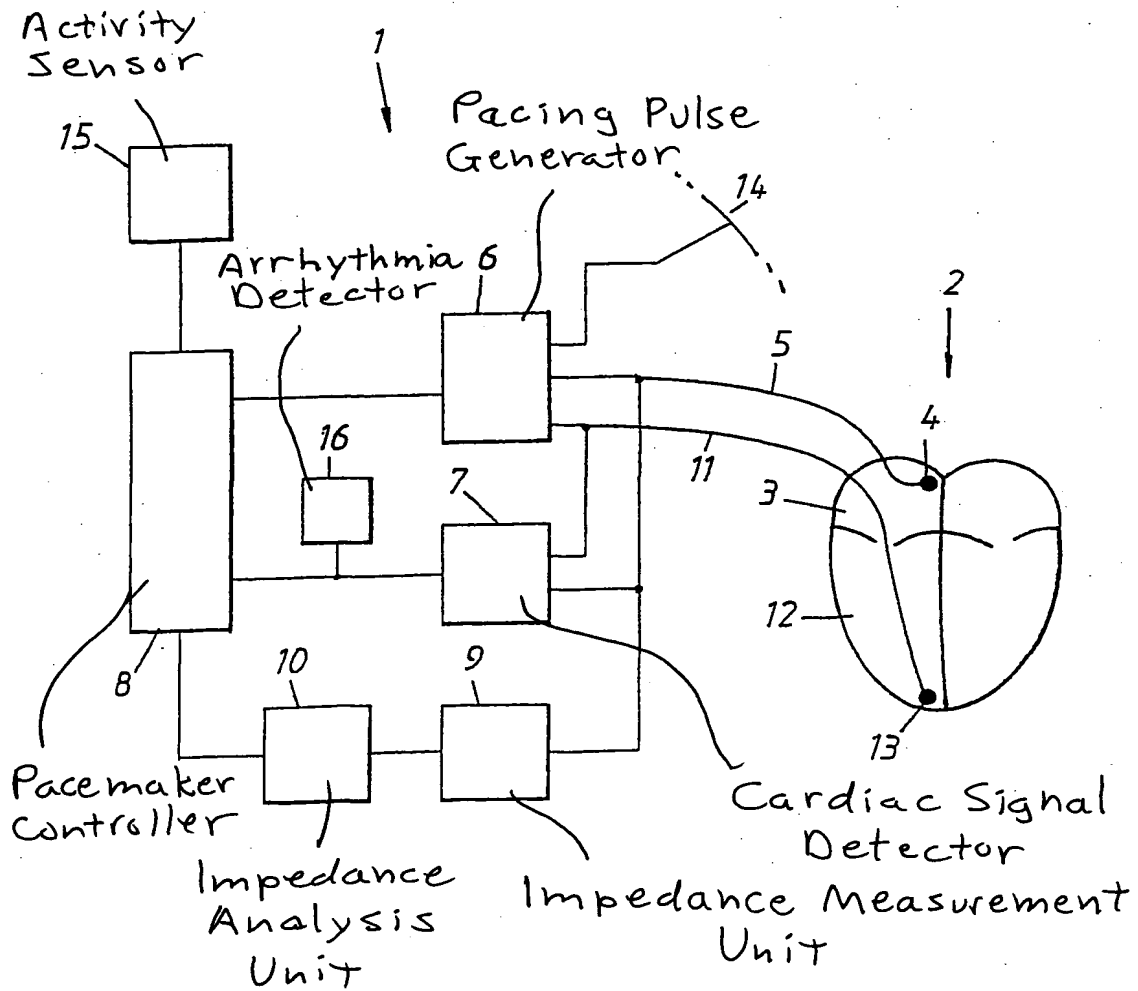 Activity
Sensor
1
Pacing Pulse
Generator
15
14
Arrhythmia
Detector
6
2
5
4
16
11
3
7
12
10
9
8
13
Pacemaker
Controller
Cardiac Signal
Detector
Impedance
Analysis
Unit
Impedance Measurement
Unit